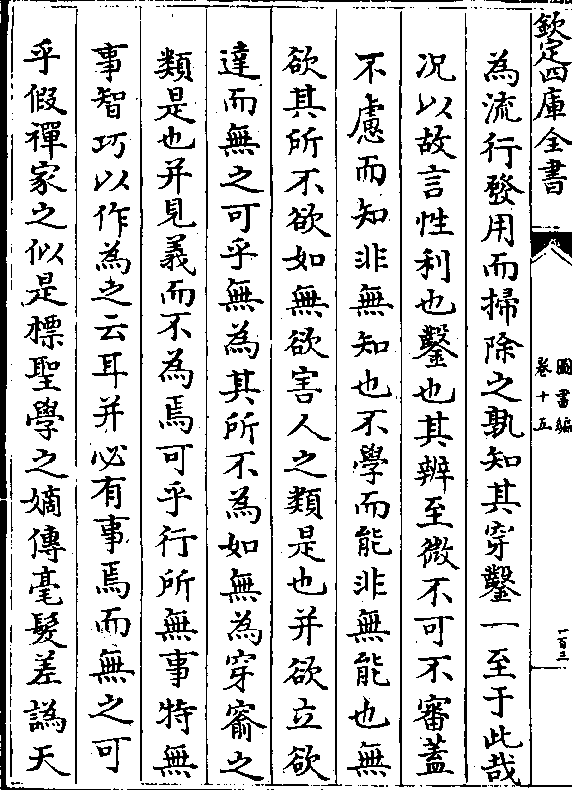 欽定四庫全書
圖書編
卷十五
一百三
為流行發用而掃除之孰知其穿鑿一至于此哉
况以故言性利也鑿也其辨至微不可不審蓋
不慮而知非無知也不學而能非無能也無
欲其所不欲如無欲害人之類是也并欲立欲
達而無之可乎無為其所不為如無為穿窬之
類是也并見義而不為焉可乎行所無事特無
事智巧以作為之云耳并必有事焉而無之可
乎假禪家之似是標聖學之嫡傳毫髮差譌天